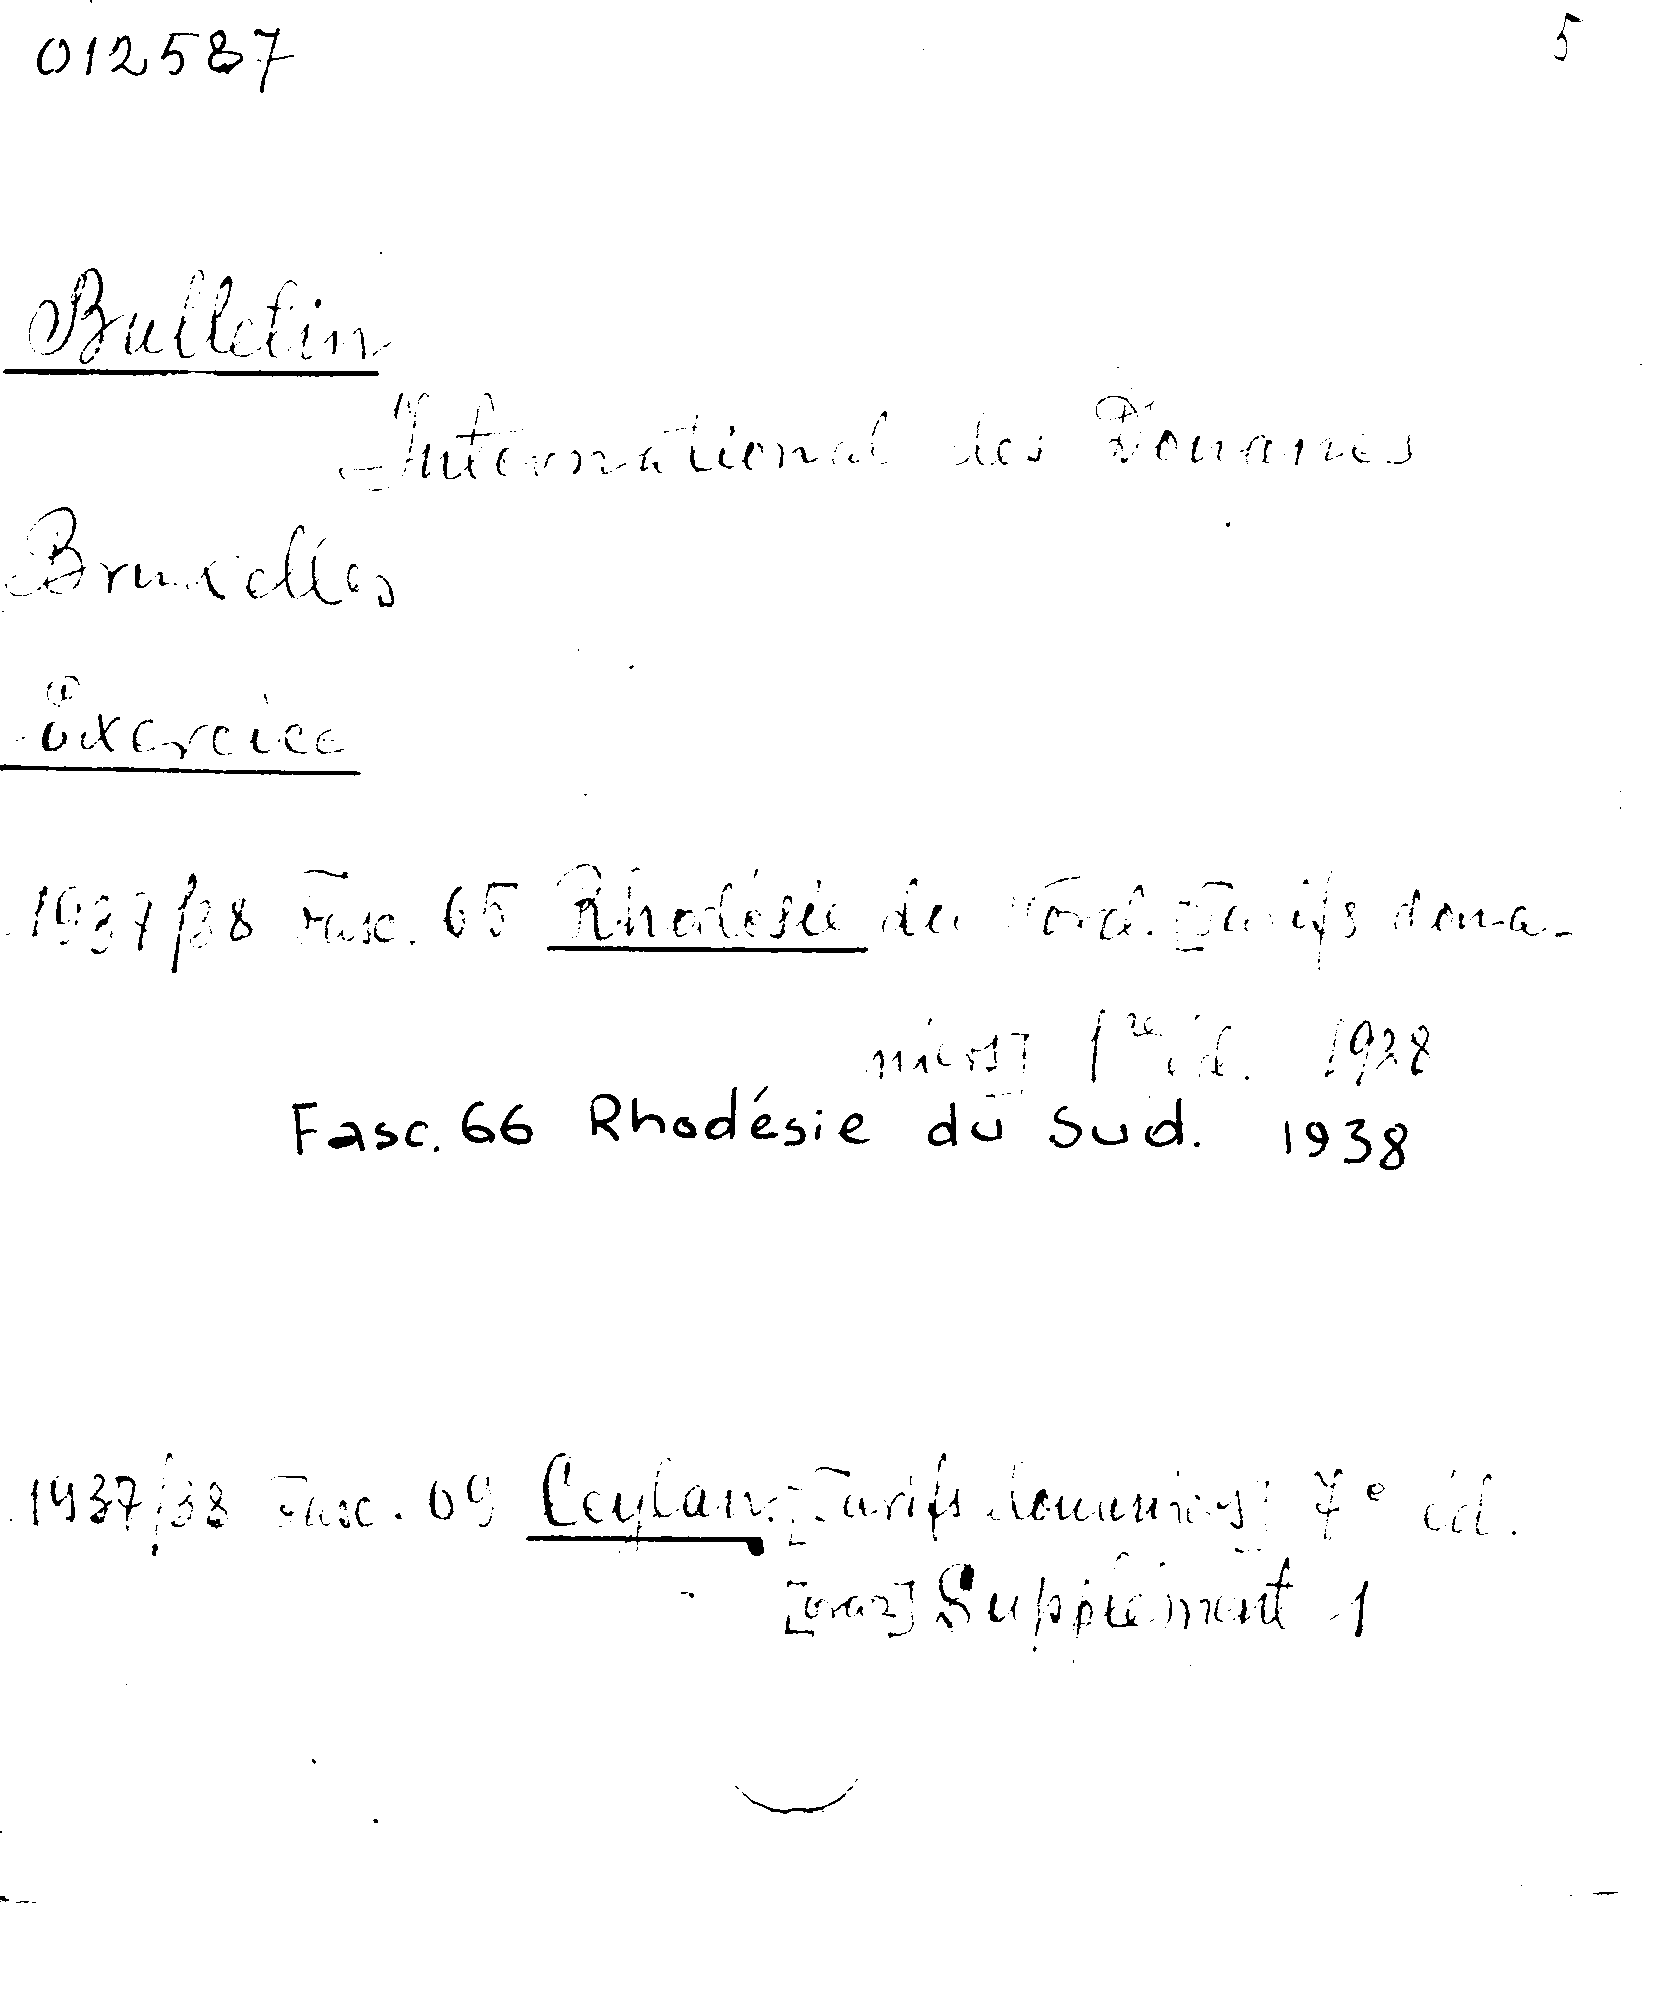 012587
5
Bulletin
International des Douanes
Bruxelles
Exercice
1937/38 Fasc. 65 Rhodésie du Nord. [Tarifs doua-
niers] 1re éd. 1928
Fasc. 66 Rhodésie du Sud. 1938
1937/38 Fasc. 69 Ceylan. [Tarifs douaniers] 7e éd.
[oraz] Supplément 1